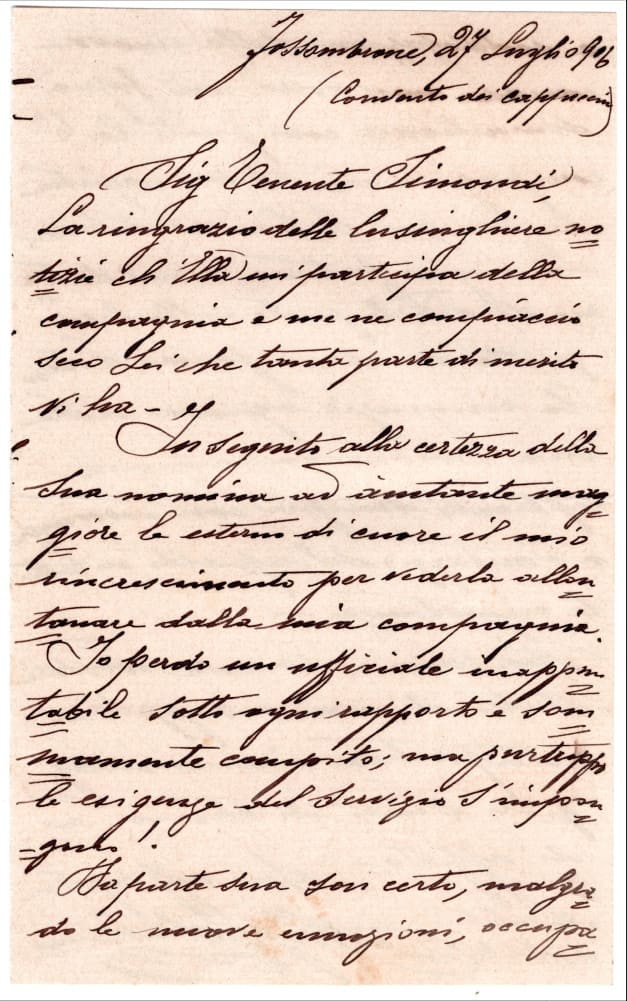 Fossombrone, 27 Luglio 906
(Convento dei cappuccini)
Sig Tenente Simondi,
La ringrazio delle lusinghiere no
tizie ch'Ella mi partecipa della
compagnia e me ne compiaccio
seco Lei che tanta parte di merito
vi ha -
In seguito alla certezza della
sua nomina ad aiutante mag
giore le esterno di cuore il mio
rincrescimento per vederla allon
tanare dalla mia compagnia.
Io perdo un ufficiale inappun
tabile sotto ogni rapporto e som
mamente compito; ma purtroppo
le esigenze del servizio s'impon
gono!
Da parte sua son certo, malgra
do le nuove, occupa